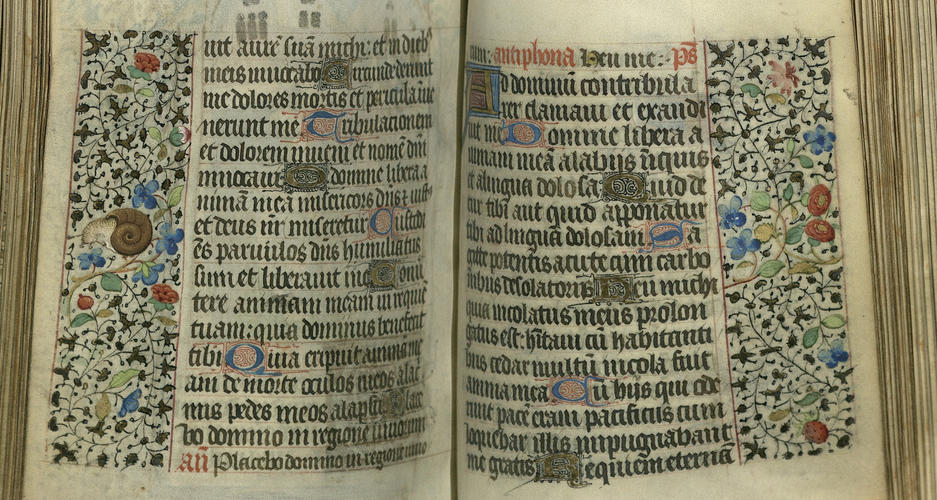 uit aurē suā michi: et in dieb
meis inuocabo Circundederunt
me dolores mortis et pericula īue
nerunt me Tribulationem
et dolorem inueni et nomē dn̄i
inuocaui O domine libera a
nimā meā misericors dn̄s
et deus n̄r miseretur Custodi
ēs paruulos dn̄s humiliatus
sum et liberauit me Conu
tere animam meam in requiē
tuam: quia dominus benefecit
tibi Quia eripuit
am de morte oculos meos a lac
mis pedes meos a lapsu Plac
bo domino in regione uiuorum
añ Placebo domino in regione
antiphona Heu me: ps
Ad dominū cum tribula
rer clamaui et exaudi
uit me Domine libera a
nimam meā a labijs īiquis
et a lingua dolosa Quid de
tur tibi aut quid apponatur
tibi ad linguā dolosam Sa
gitte potentis acute cum carbo
nibus desolatorijs Heu michi
quia incolatus meus prolon
gatus est: hītaui cū habitanti
bus cedar multū incola fuit
anima mea Cū hijs qui ode
runt pacē eram pacificus cum
loquebar illis inpugnabant
me gratis Requiem eternā